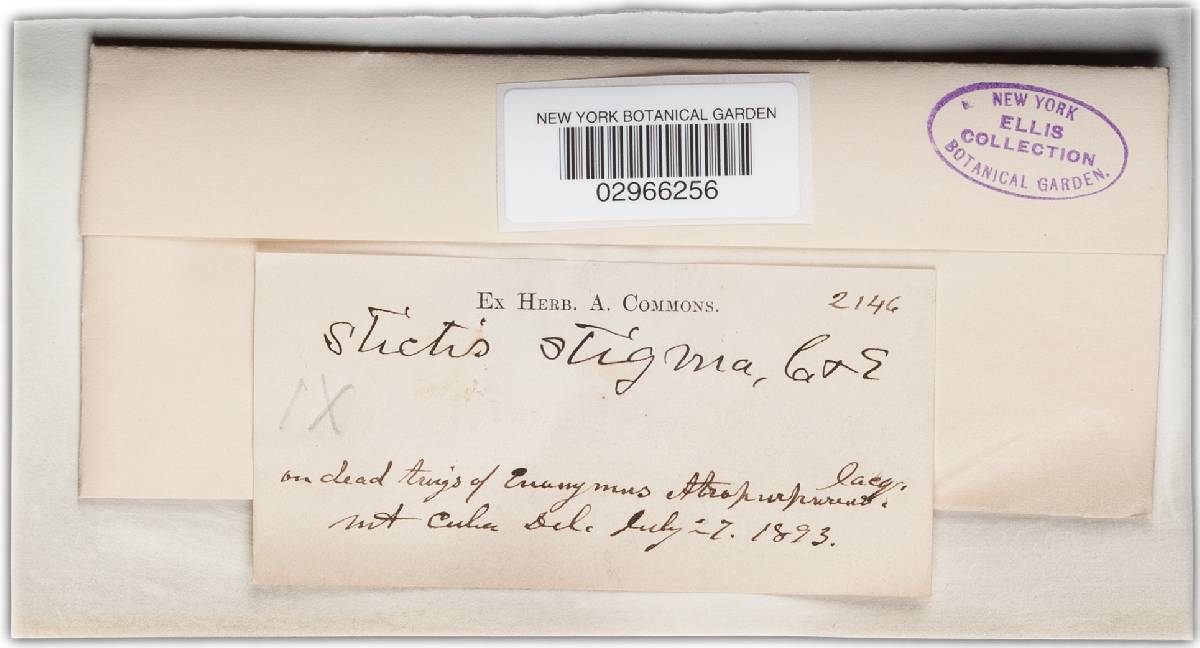 NEW YORK BOTANICAL GARDEN
02966256
NEW YORK
ELLIS
COLLECTION
BOTANICAL GARDEN.
EX HERB. A. COMMONS. 2146
Stictis stigma, C&E
IX
on dead twigs of Euonymus Atropurpureus. Jacq.
mt Cuba Del. July 27. 1893.